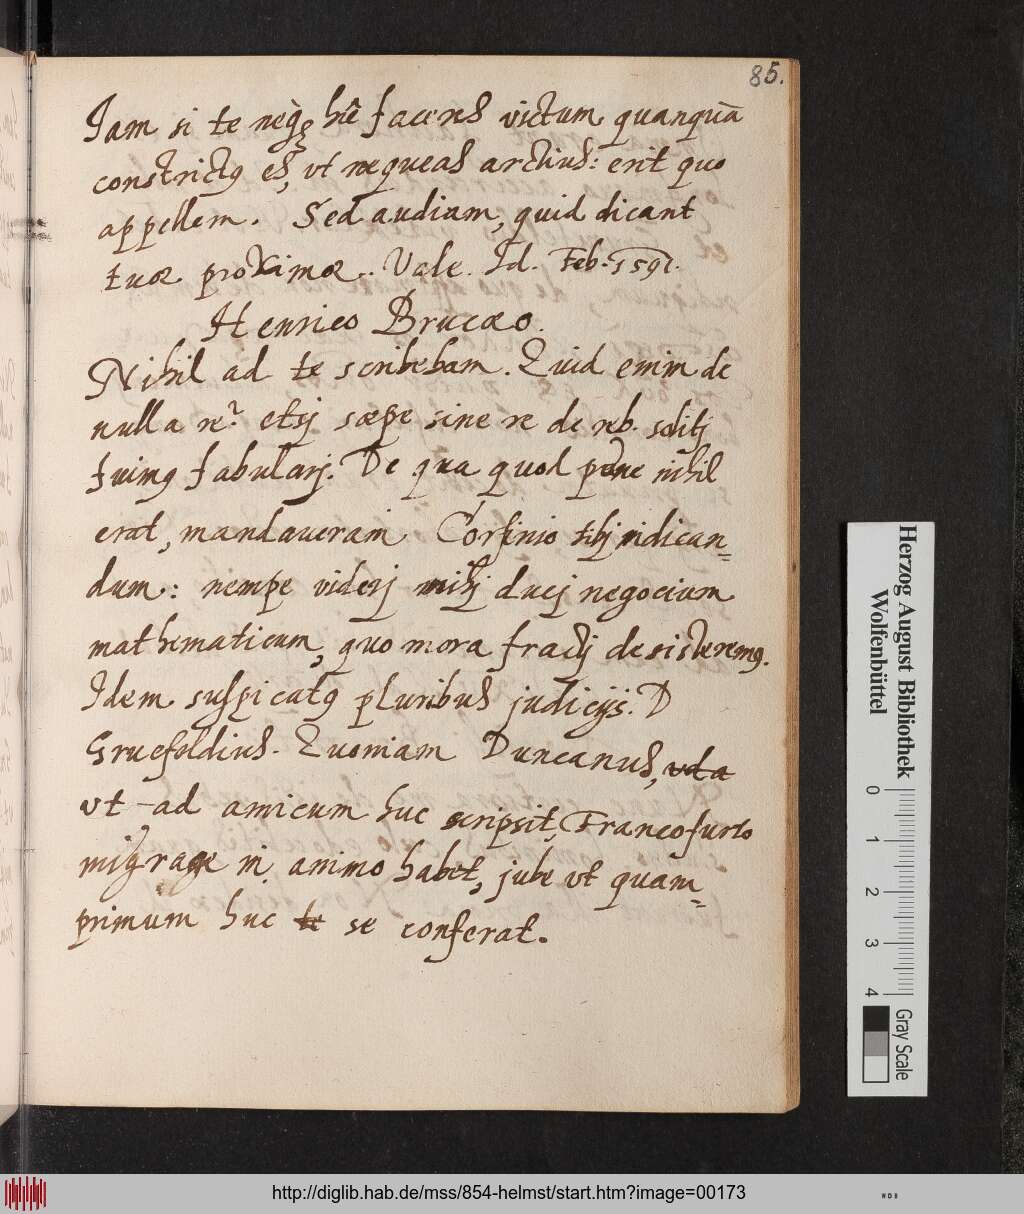 85.
Jam si te neq̀ꝫ hîc faceres victum, quanquā
constrictꝰ es, vt nequeas arctius: erit quo
appellem. Sed audiam, quid dicant
tuæ proximæ. Vale. Id. Feb. 1591.
Henrico Brucæo.
Nihil ad te scribebam. Quid enim de
nulla re? etsj sæpe sine re de reb. solitj
fuimꝰ fabularj. De qua quod pene nihil
erat, mandaveram Corfinio tibj indican=
dum: nempe viderj mihj ducj negocium
mathematicum, quo mora fractj desisteremꝰ.
Idem suspicatꝰ pluribus judicijs. D
Gruefeldius. Quoniam Duncanus,
vt ad amicum huc scripsit, Francofurto
migrare in animo habet, jube vt quam=
primum huc te se conferat.
Herzog August Bibliothek
Wolfenbüttel
0 1 2 3 4
Gray Scale
http://diglib.hab.de/mss/854-helmst/start.htm?image=00173
WDB